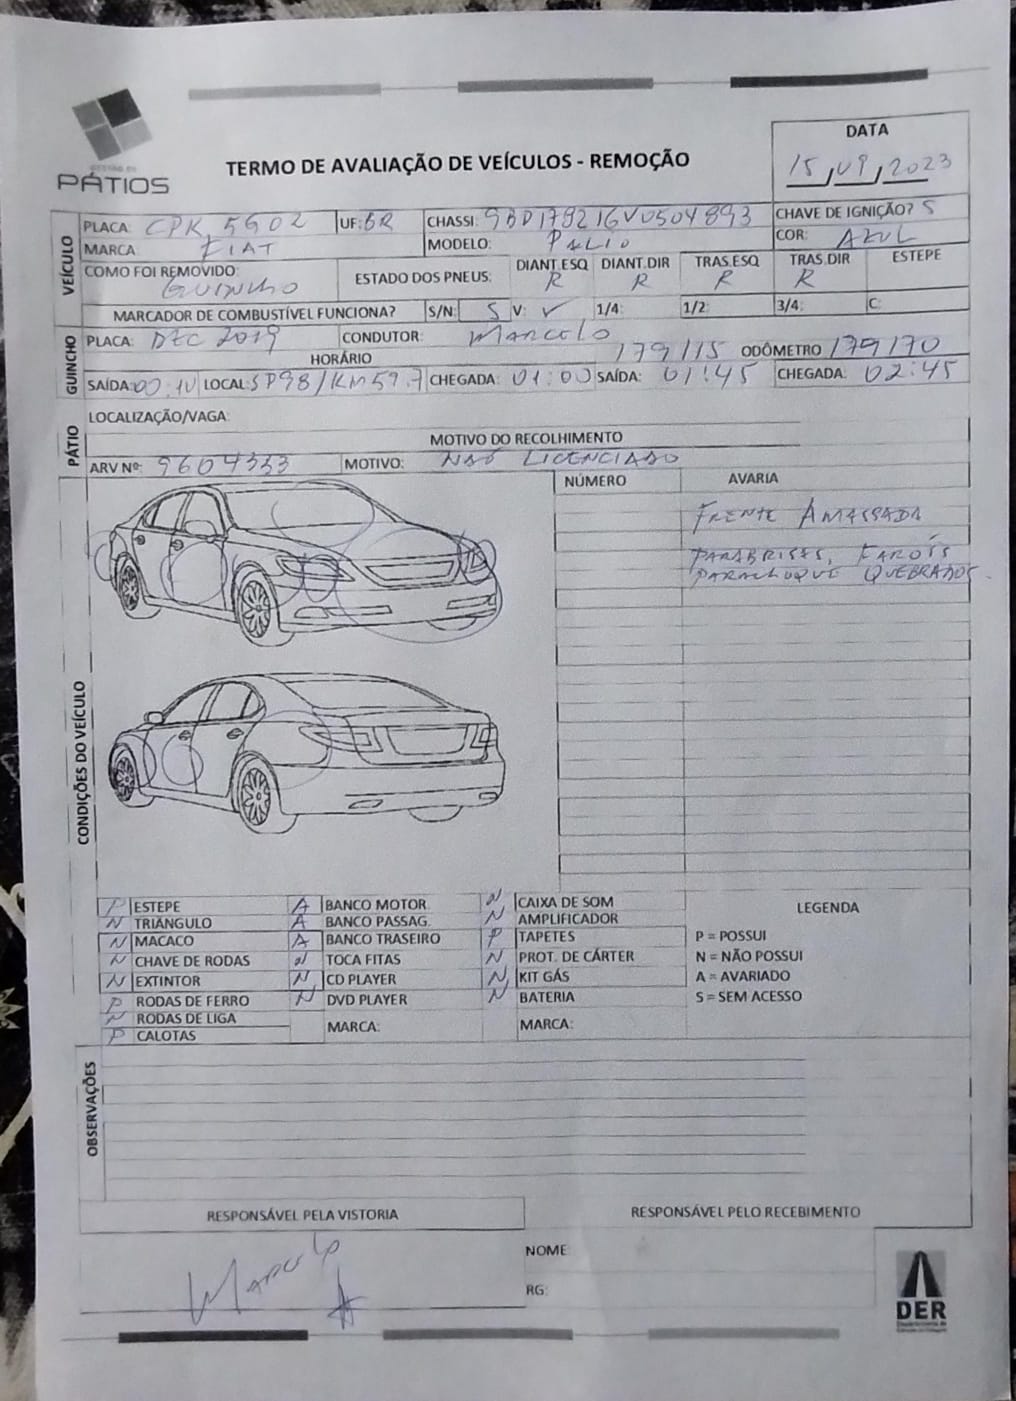 DATA
15/09/2023
TERMO DE AVALIAÇÃO DE VEÍCULOS - REMOÇÃO
PÁTIOS
VEÍCULO
PLACA: CPK 5902 UF: BR CHASSI: 9BD178216V0504893 CHAVE DE IGNIÇÃO? S
MARCA FIAT MODELO: PALIO COR: AZUL
COMO FOI REMOVIDO: GUINCHO ESTADO DOS PNEUS: DIANT.ESQ R DIANT.DIR R TRAS.ESQ R TRAS.DIR R ESTEPE
MARCADOR DE COMBUSTÍVEL FUNCIONA? S/N: S V: ✓ 1/4: 1/2: 3/4: C:
GUINCHO
PLACA: DZC 2019 CONDUTOR: MARCELO
HORÁRIO 179115 ODÔMETRO 179170
SAÍDA: 00:10 LOCAL: SP98/KM59.7 CHEGADA: 01:00 SAÍDA: 01:45 CHEGADA: 02:45
PÁTIO
LOCALIZAÇÃO/VAGA:
MOTIVO DO RECOLHIMENTO
ARV Nº: 9604333 MOTIVO: NAÕ LICENCIADO
CONDIÇÕES DO VEÍCULO
NÚMERO AVARIA
FRENTE AMASSADA
PARABRISAS, FAROÍS
PARACHOQUE QUEBRADOS.
P ESTEPE A BANCO MOTOR. N CAIXA DE SOM
N TRIÂNGULO A BANCO PASSAG. N AMPLIFICADOR
N MACACO A BANCO TRASEIRO P TAPETES
N CHAVE DE RODAS N TOCA FITAS N PROT. DE CÁRTER
N EXTINTOR N CD PLAYER N KIT GÁS
P RODAS DE FERRO N DVD PLAYER N BATERIA
N RODAS DE LIGA MARCA: MARCA:
P CALOTAS
LEGENDA
P = POSSUI
N = NÃO POSSUI
A = AVARIADO
S = SEM ACESSO
OBSERVAÇÕES
RESPONSÁVEL PELA VISTORIA RESPONSÁVEL PELO RECEBIMENTO
Marcelo
NOME:
RG:
DER